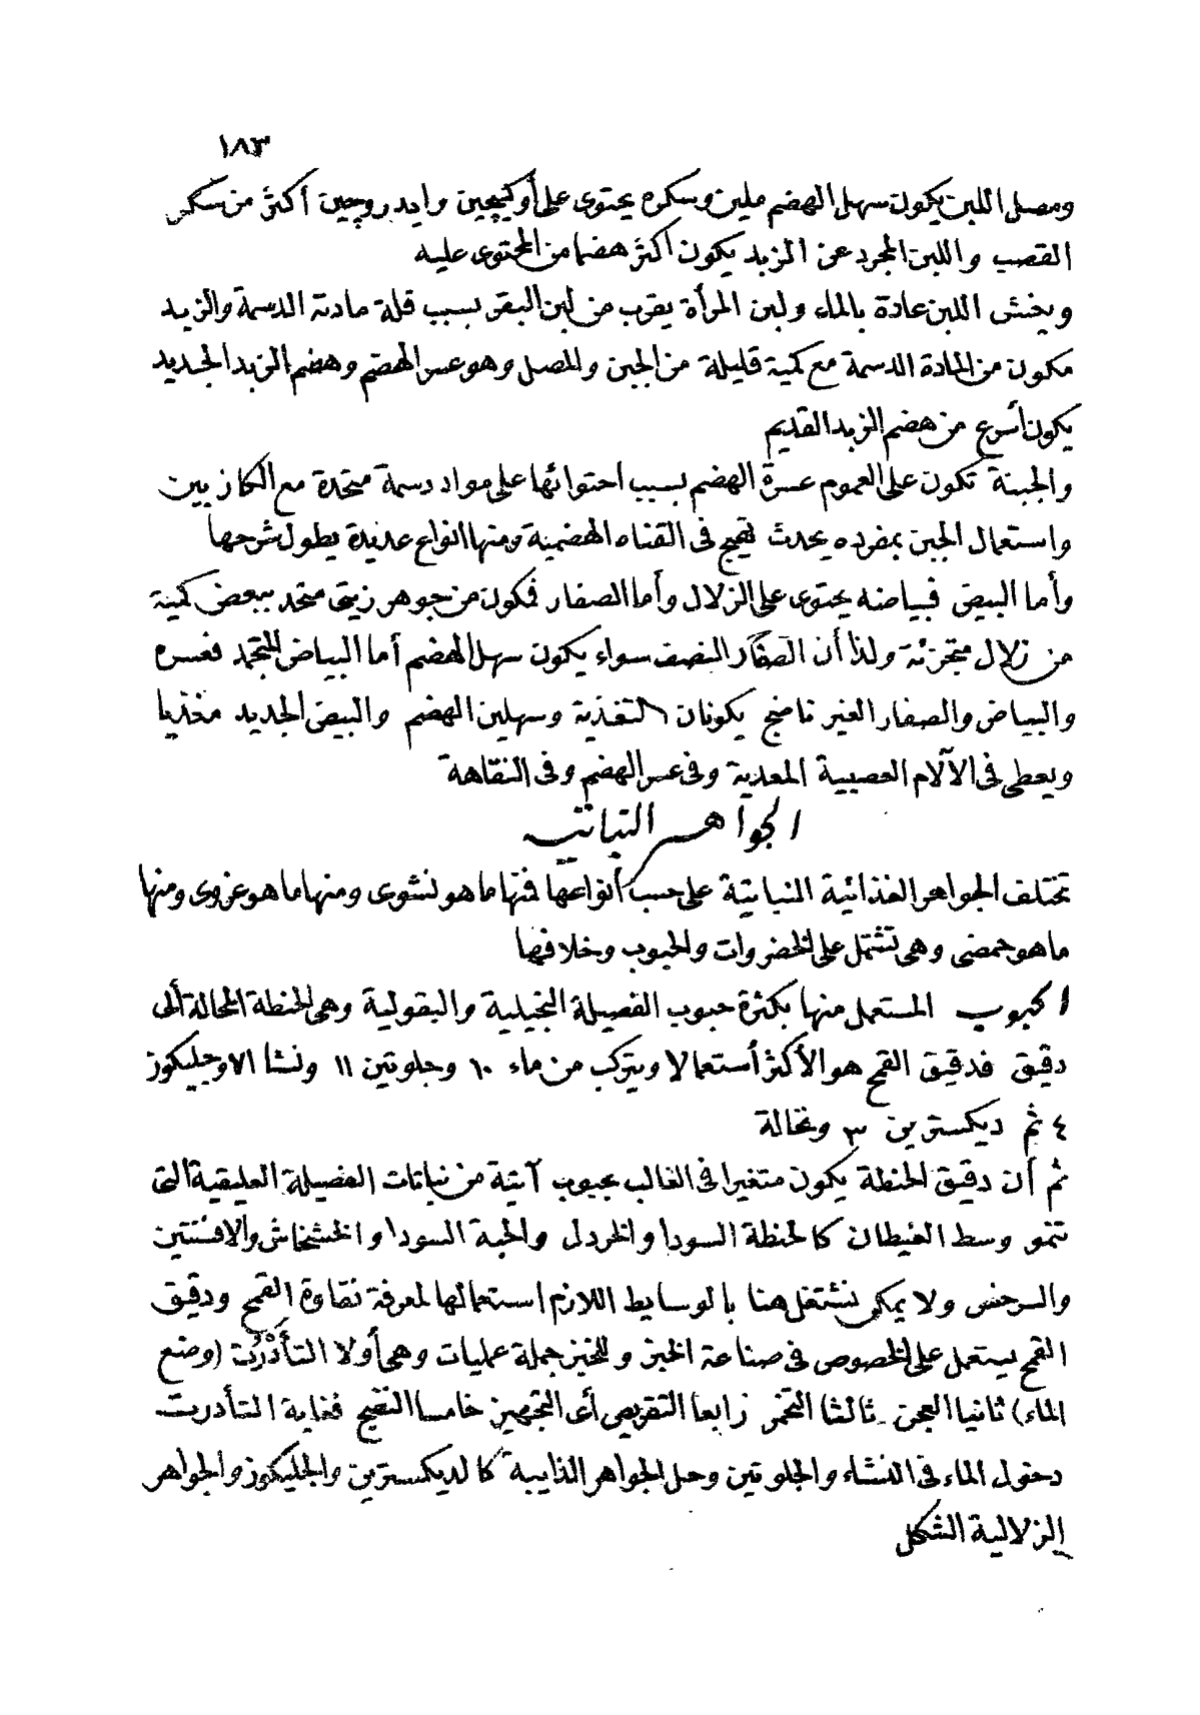 ١٨٣
ومصل اللبن يكون سهل الهضم ملين وسكره يحتوى على أوكيجين وايدروچين أكثر من سكر
القصب واللبن المجرد عن الزبد يكون أكثر هضما من المحتوى عليه
ويغش اللبن عادة بالماء ولبن المرأة يقرب من لبن البقر بسبب قلة مادته الدسمة والزبد
مكون من المادة الدسمة مع كمية قليلة من الجبن والمصل وهو عسر الهضم وهضم الزبد الجديد
يكون أسرع من هضم الزبد القديم
والجبنة تكون على العموم عسرة الهضم بسبب احتوائها على مواد دسمة متحدة مع الكازيين
واستعمال الجبن بمفرده يحدث تهيج فى القناه الهضمية ومنها انواع عديدة يطول شرحها
وأما البيض فبياضه يحتوى على الزلال وأما الصفار فكون من جوهر زيتى متحد ببعض كمية
من زلال متجزئة ولذا أن الصفار النصف سواء يكون سهل الهضم أما البياض المتجمد فعسره
والبياض والصفار الغير ناضج يكونان التغذية وسهلين الهضم والبيض الجديد مغذيا
ويعطى فى الآلام العصبية المعدية وفى عسر الهضم وفى النقاهة
الجواهر النباتيه
تختلف الجواهر الغذائية النباتية على حسب أنواعها فمنها ما هو نشوى ومنها ما هو غروى ومنها
ما هو حمضى وهى تشتمل على الخضروات والحبوب وخلافها
الحبوب المستعمل منها بكثرة حبوب الفصيلة النجيلية والبقولية وهى الحنطة المحالة ألى
دقيق فدقيق القمح هو الأكثر أستعمالا ويتركب من ماء ١٠ وجلوتين ١١ ونشا ٧١ وجليكوز
٤ ثم ديكسترين ٣ ونخالة
ثم أن دقيق الحنطة يكون متغيرا فى الغالب بحبوب آتية من نباتات الفصيلة العليقية التى
تنمو وسط الغيطان كالحنطة السودا والخردل والحبة السودا والخشخاش والافسنتين
والسرخس ولا يمكن نشتغل هنا بالوسايط اللازم استعمالها لمعرفة نقاوة القمح ودقيق
القمح يستعمل على الخصوص فى صناعة الخبز وللخبز جملة عمليات وهى أولا التأدرت (وضع
الماء) ثانيا العجن ـ ثالثا التخمر رابعا التقريص أى التجهيز خامسا النضج فغاية التأدرت
دخول الماء فى النشاء والجلوتين وحل الجواهر الذايبة كالديكسترين والجليكوز والجواهر
الزلالية الشكل